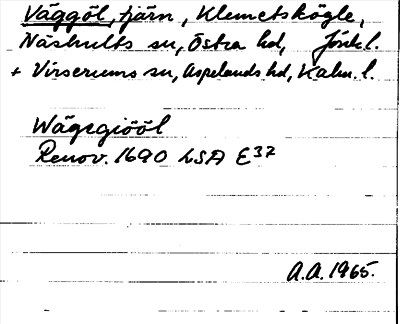 Väggöl, tjärn, Klemetskögle,
Näshults sn, Östra hd, Jönk.l.
+ Virserums sn, Aspelands hd, Kalm. l.
Wägegiööl
Renov. 1690 LSA E37
A.A. 1965.